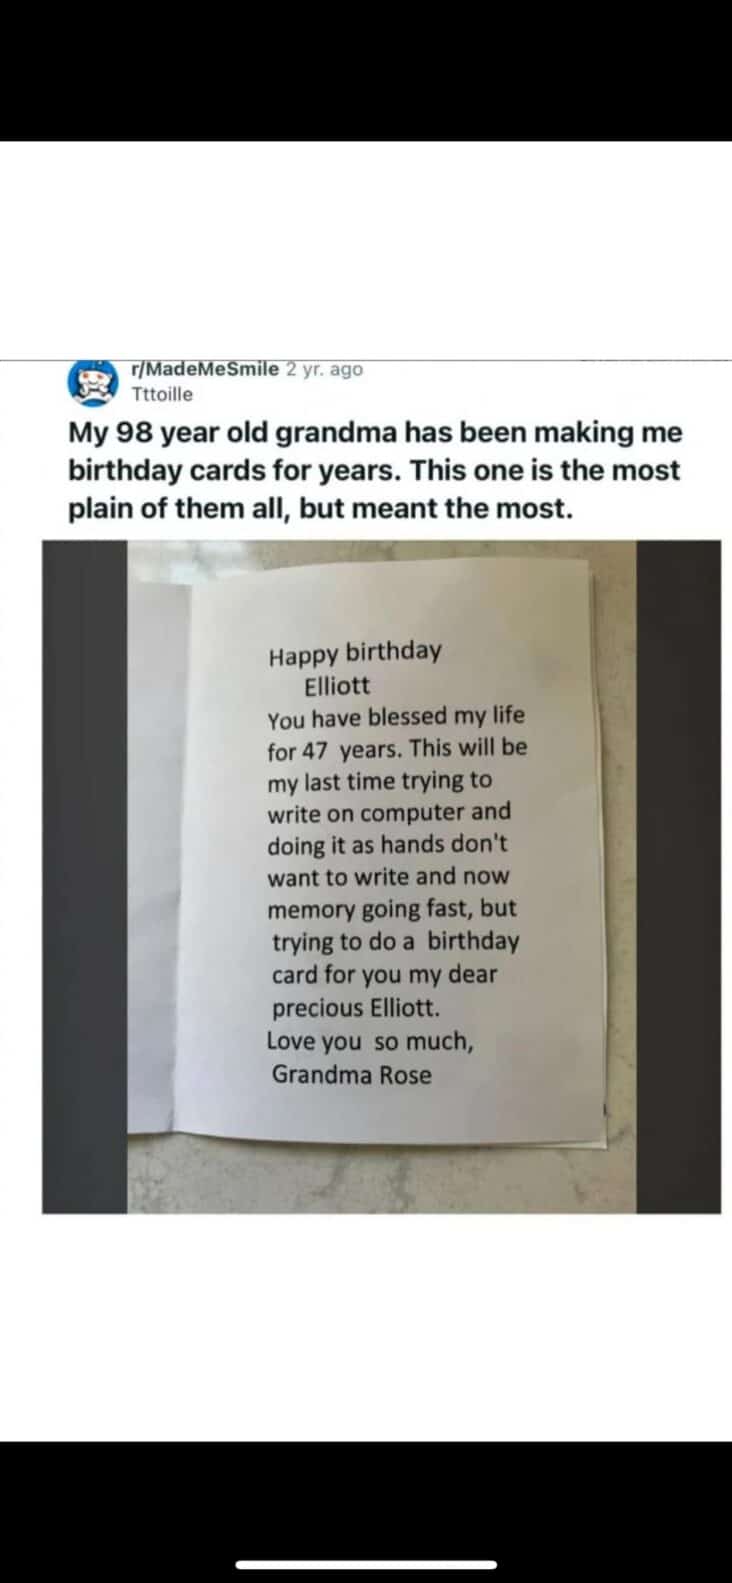 r/MadeMeSmile 2 yr. ago
Tttoille
My 98 year old grandma has been making me
birthday cards for years. This one is the most
plain of them all, but meant the most.
Happy birthday
Elliott
You have blessed my life
for 47 years. This will be
my last time trying to
write on computer and
doing it as hands don't
want to write and now
memory going fast, but
trying to do a birthday
card for you my dear
precious Elliott.
Love you so much,
Grandma Rose